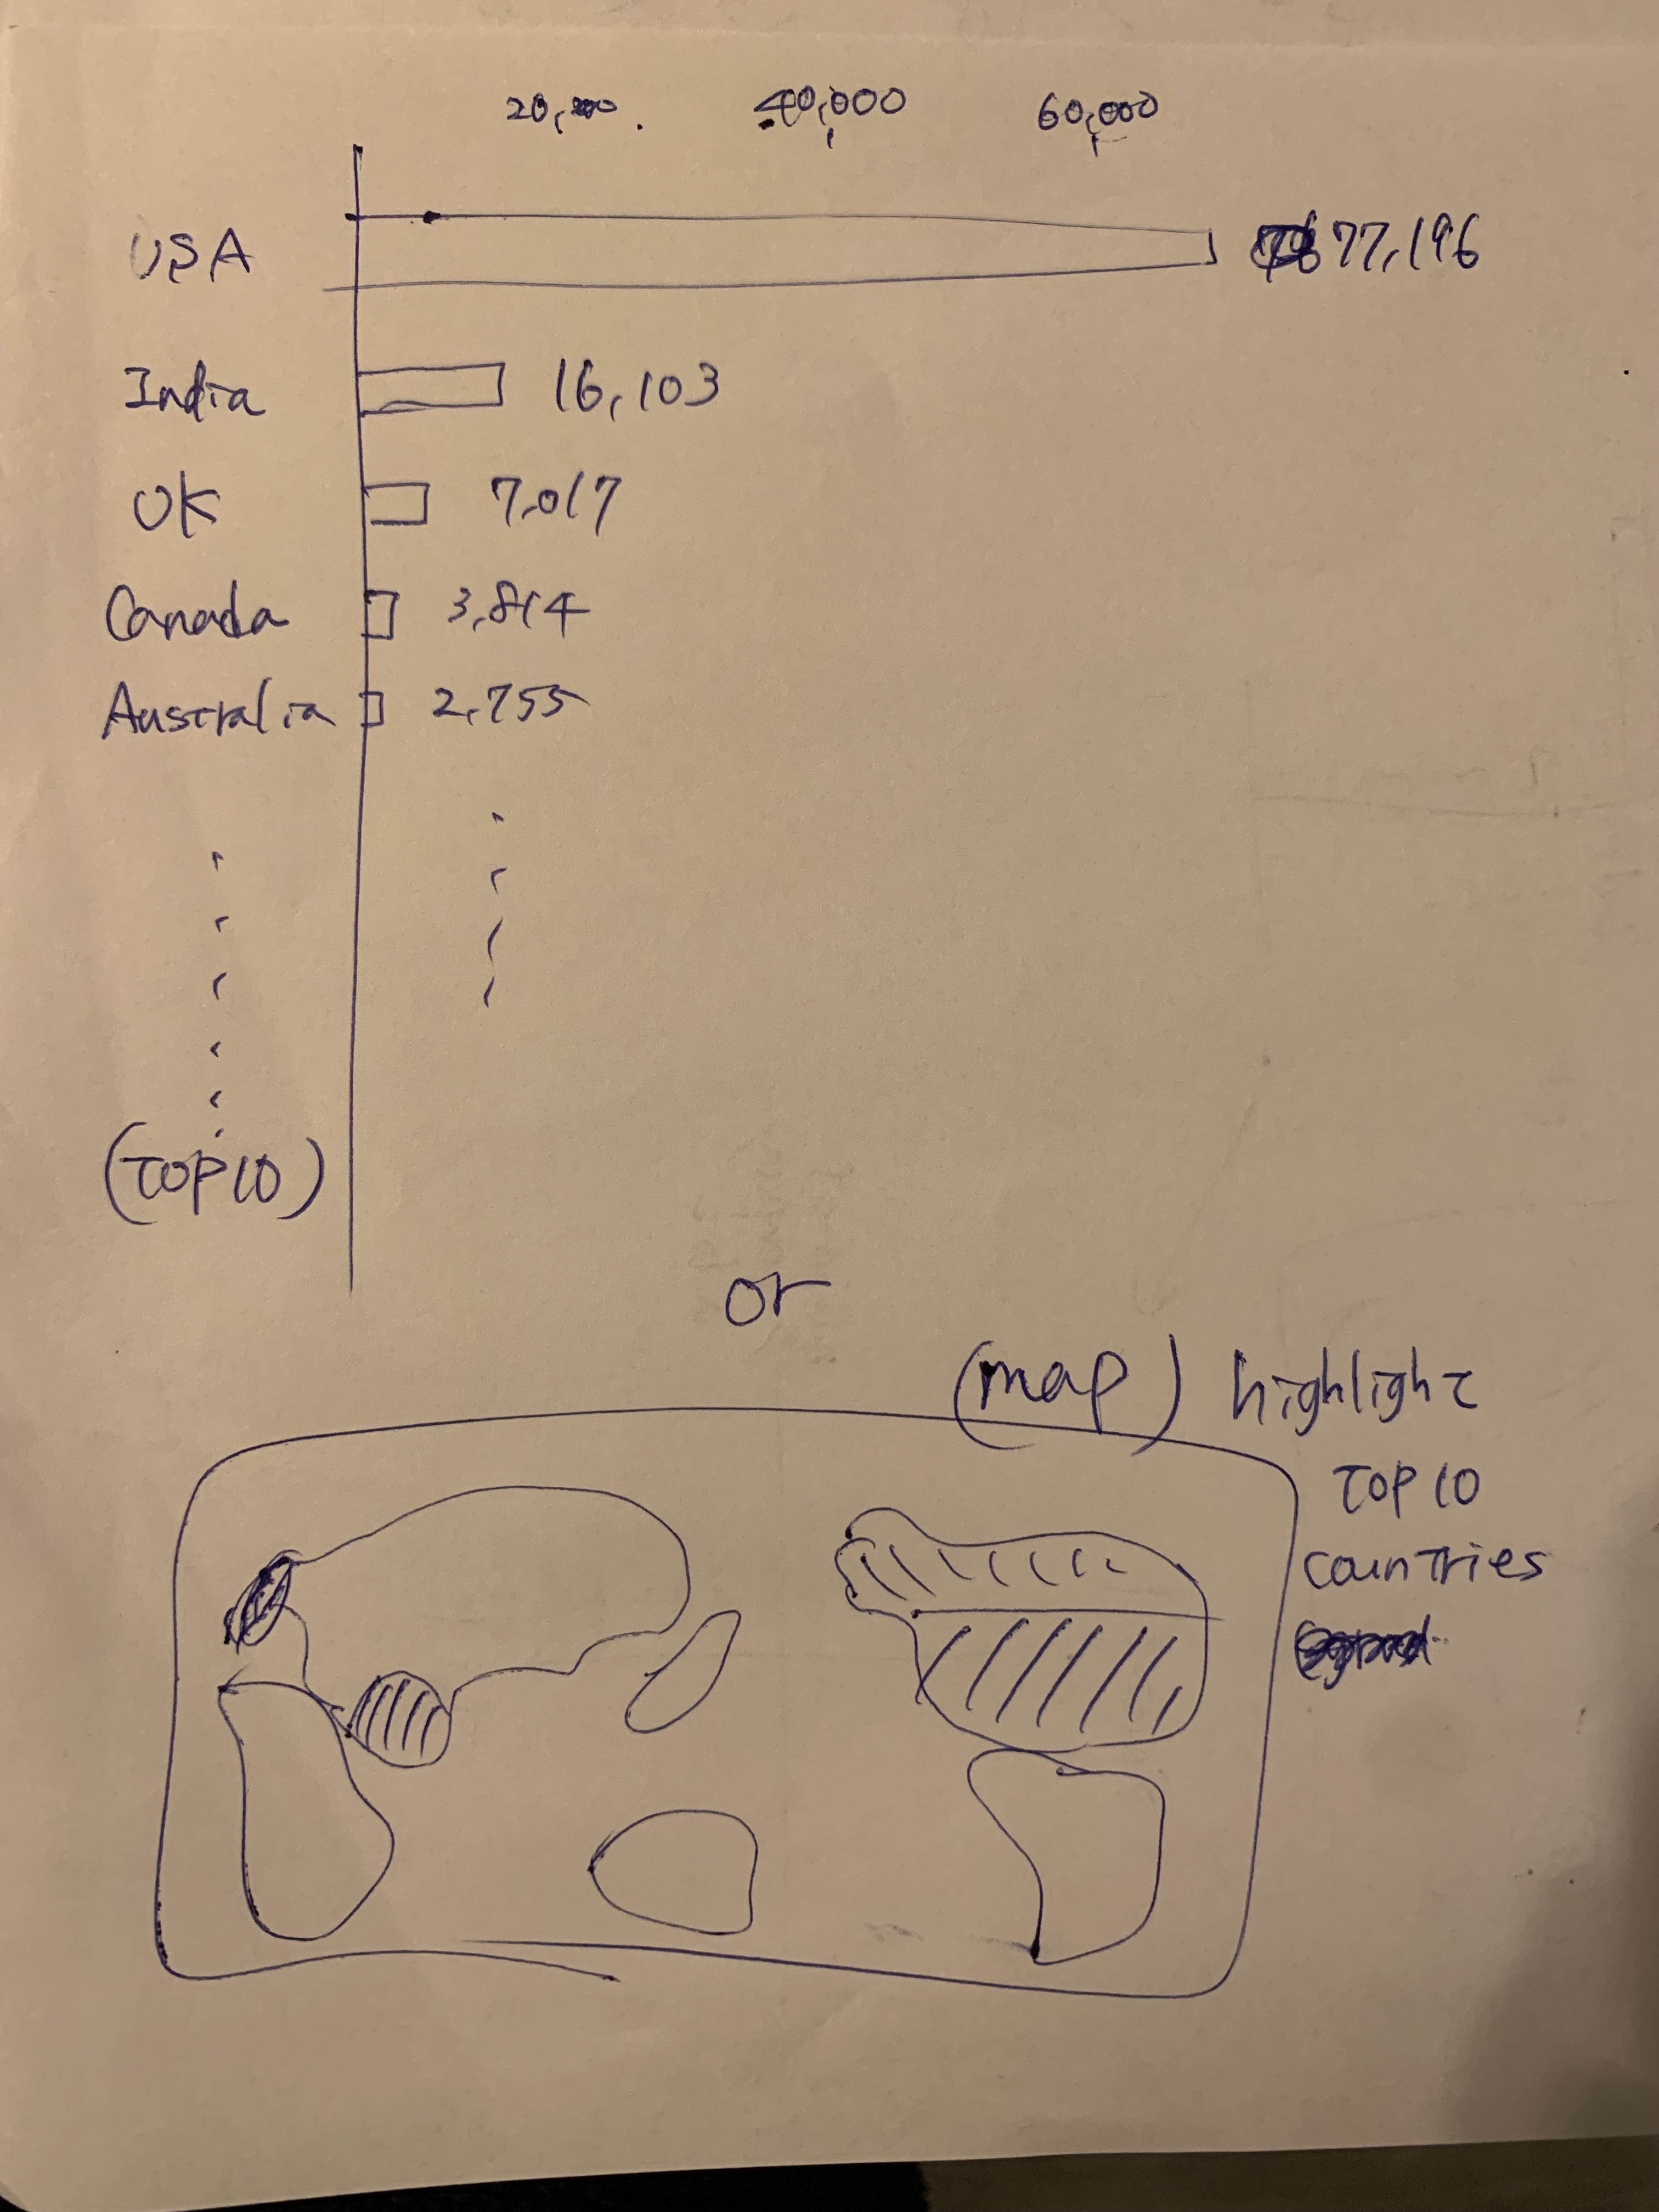 20,000 40,000 60,000
USA 77,196
India 16,103
UK 7,017
Canada 3,814
Australia 2,755
(TOP 10)
or
(map) highlight
TOP 10
countries